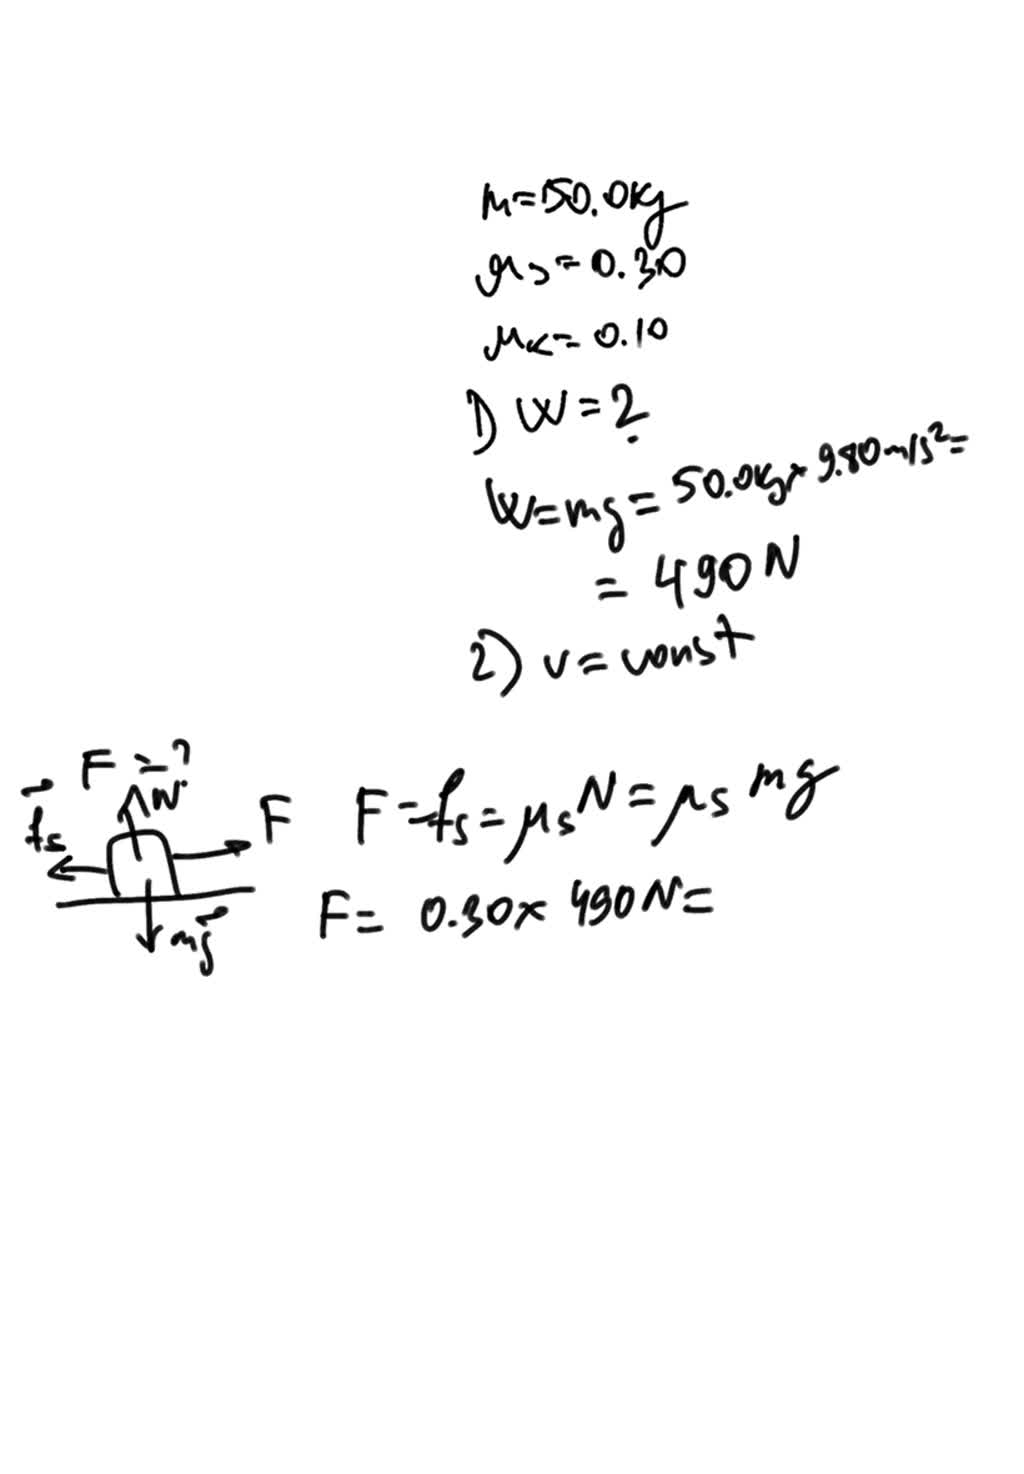 m=50.0kg
μs=0.30
μk=0.10
1) W=?
W=mg=50.0kg×9.80m/s²=
=490N
2) v=const
F=?
N
fs
F
mg
F=fs=μsN=μsmg
F=0.30×490N=